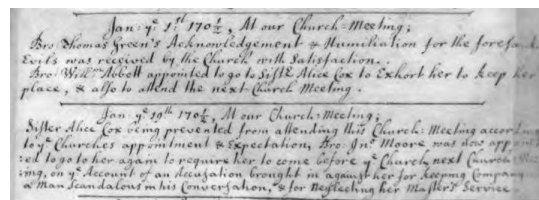 Jan: yͤ 1:ˢᵗ 170½, At our Church=Meeting;
Bro: Thomas Green's Acknowledgement & Humiliation for the foresaid
Evils was received by the Church with Satisfaction.
Bro: Willᵐ Abbott appointed to go to Sister Alice Cox to Exhort her to keep her
place, & also to attend the next Church Meeting.
Jan: yͤ 19ᵗʰ 170½, At our Church=Meeting;
Sister Alice Cox being prevented from attending this Church=Meeting according
to yͤ Churches appointment & Expectation, Bro: Jnᵒ Moore was now appoint
:ed to go to her again to require her to come before yͤ Church, next Church=Mee
:ing, on yͤ Account of an accusation brought in against her for keeping Company
a Man Scandalous in his Conversation, & for Neglecting her Master's Service.